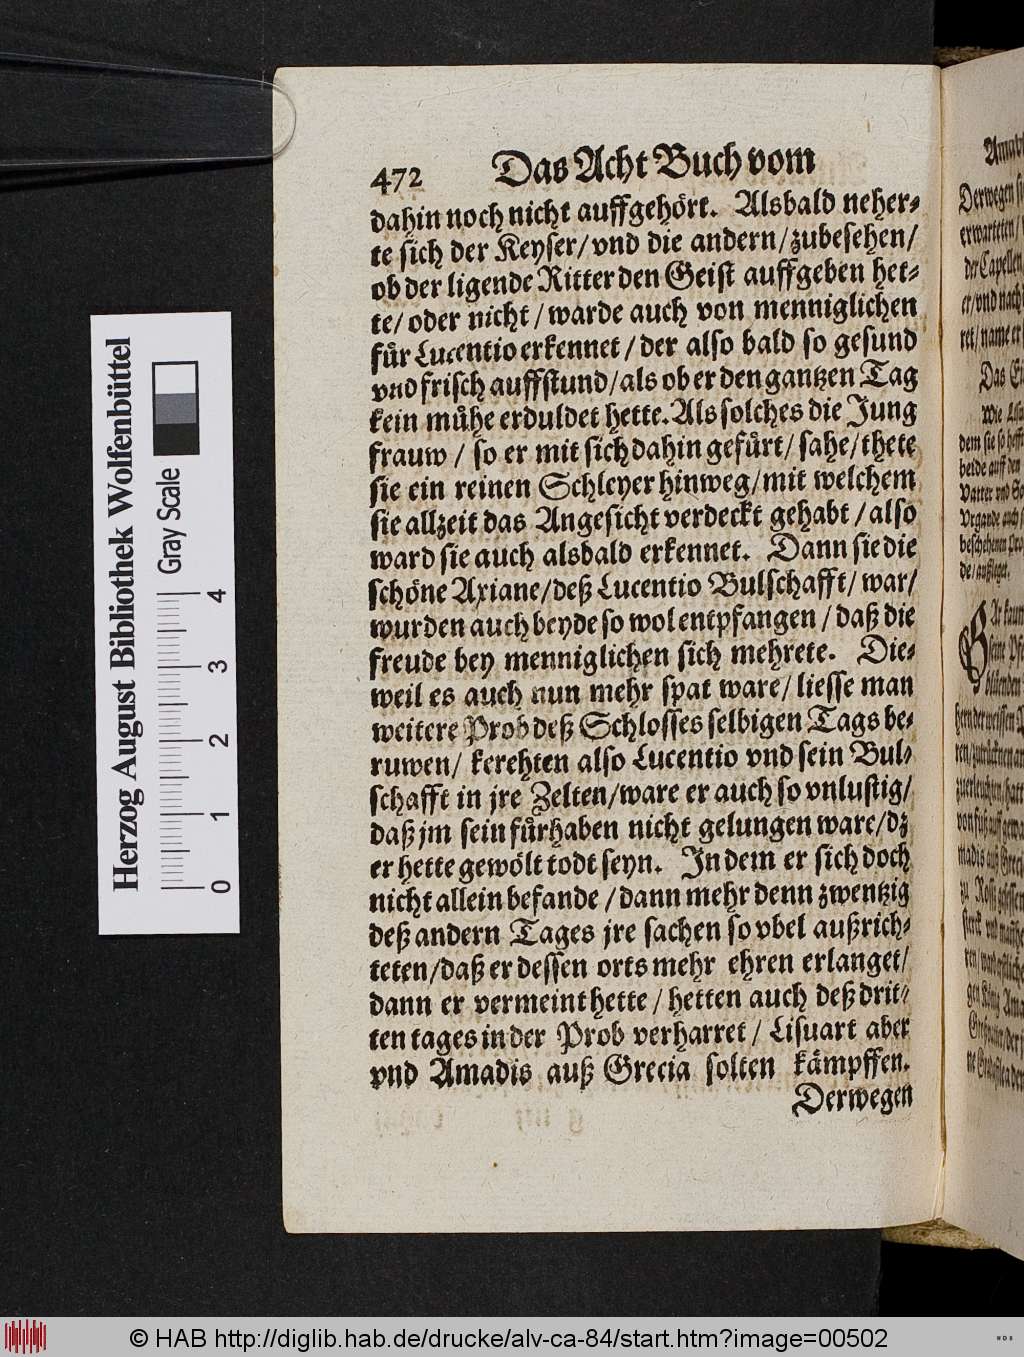 472 Das Acht Buch vom
dahin noch nicht auffgehört. Alsbald neher-
te sich der Keyser/ vnd die andern/ zubesehen/
ob der ligende Ritter den Geist auffgeben het-
te/ oder nicht/ warde auch von menniglichen
für Lucentio erkennet/ der also bald so gesund
vnd frisch auffstund/ als ob er den gantzen Tag
kein mühe erduldet hette. Als solches die Jung
frauw/ so er mit sich dahin gefürt/ sahe/ thete
sie ein reinen Schleyer hinweg/ mit welchem
sie allzeit das Angesicht verdeckt gehabt/ also
ward sie auch alsbald erkennet. Dann sie die
schöne Axiane/ deß Lucentio Bulschafft/ war/
wurden auch beyde so wol entpfangen/ daß die
freude bey menniglichen sich mehrete. Die-
weil es auch nun mehr spat ware/ liesse man
weitere Prob deß Schlosses selbigen Tags be-
ruwen/ kerehten also Lucentio vnd sein Bul-
schafft in jre Zelten/ ware er auch so vnlustig/
daß jm sein fürhaben nicht gelungen ware/ dz
er hette gewölt todt seyn. Indem er sich doch
nicht allein befande/ dann mehr denn zwentzig
deß andern Tages jre sachen so vbel außrich-
teten/ daß er dessen orts mehr ehren erlanget/
dann er vermeint hette/ hetten auch deß drit-
ten tages in der Prob verharret/ Lisuart aber
vnd Amadis auß Grecia solten kämpffen.
Derwegen
Derwegen
erwarteten/
der Capellen
er/ vnd nach
ret/ name er
Das
Wie
dem sie so
beide auff den
Vatter vnd
Vrgande auch
beschehenen
de/ außleget.
Herzog August Bibliothek Wolfenbüttel
Gray Scale
0 1 2 3 4
© HAB http://diglib.hab.de/drucke/alv-ca-84/start.htm?image=00502